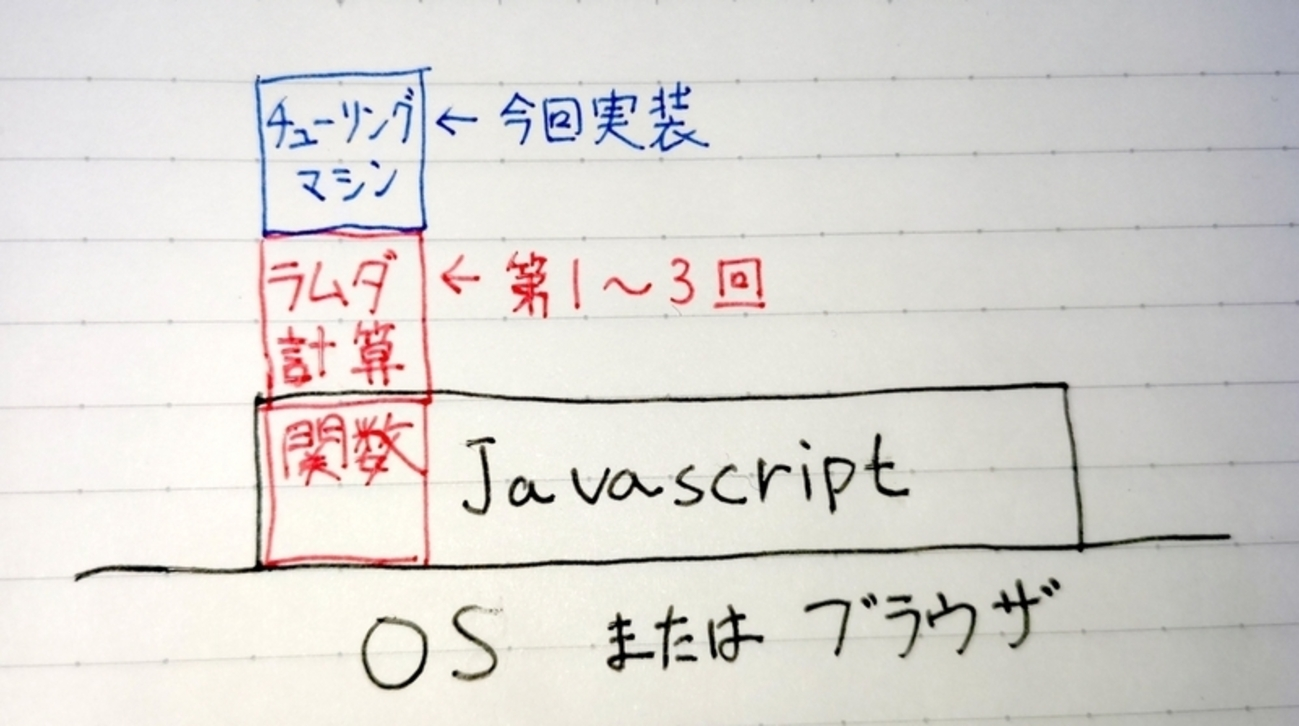 チューリング
マシン
← 今回実装
ラムダ
計算
← 第1〜3回
関数
Javascript
OS または ブラウザ